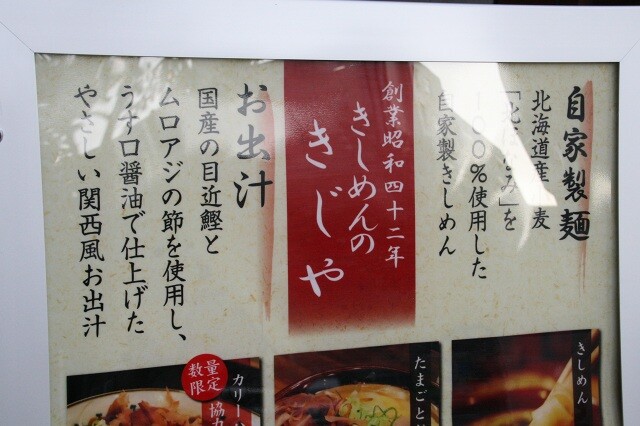 自家製麺
北海道産小麦
を
100%使用した
自家製きしめん
創業昭和四十二年
きしめんの
きじや
お出汁
国産の目近鰹と
ムロアジの節を使用し、
うす口醤油で仕上げた
やさしい関西風お出汁
きしめん
たまごと
数量限定
カリー
協力